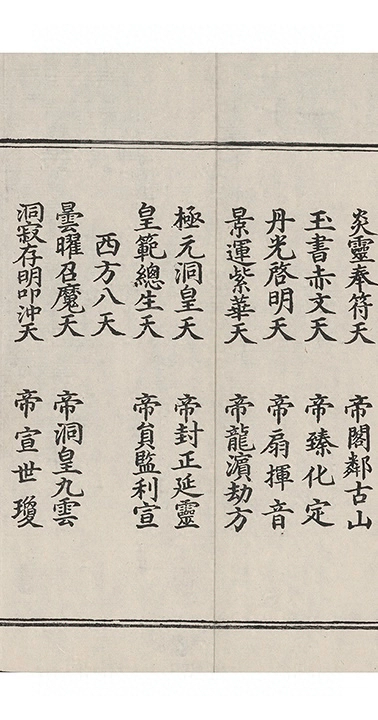 炎靈奉符天　帝閣鄰古山
玉書赤文天　帝臻化定
丹光啓明天　帝扇揮音
景運紫華天　帝龍濵劫方
極元洞皇天　帝封正延靈
皇範總生天　帝貟監利宣
西方八天
曇曜召魔天　帝洞皇九雲
洞寂存明叩沖天　帝宣世瓊